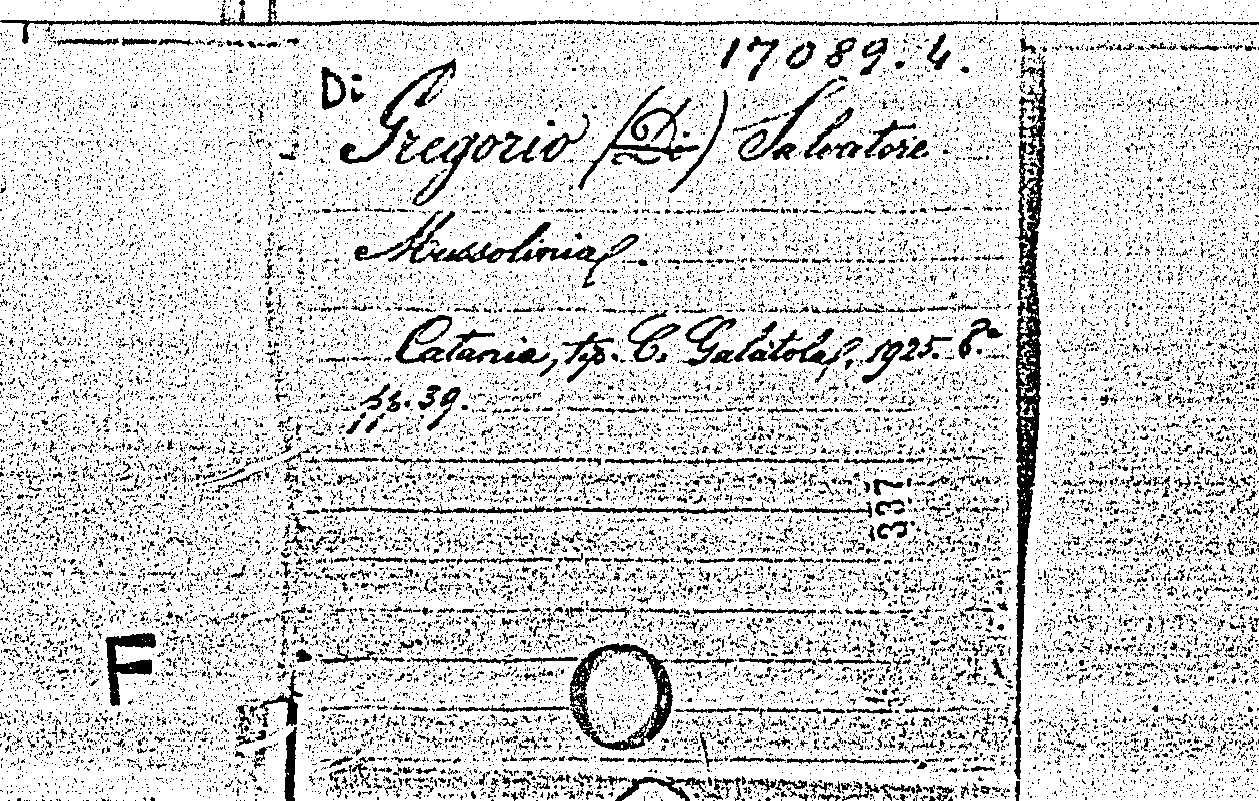 17089.4.
Di Gregorio (Di) Salvatore
Mussolinia.
Catania, tip. C. Galàtola, 1925. 8.º
pp. 39.
337
F